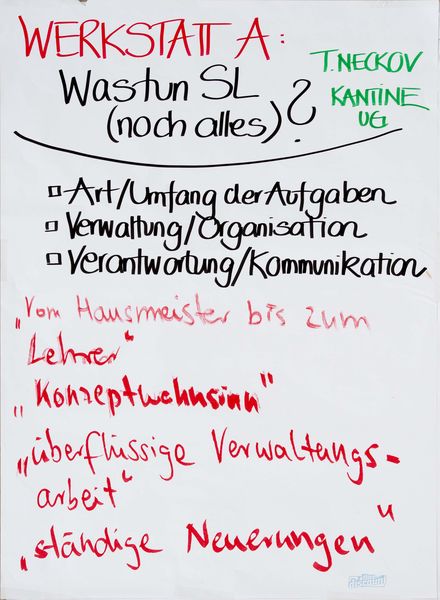 WERKSTATT A:
T. NECKOV
Was tun SL
KANTINE
(noch alles)?
UG
Art/Umfang der Aufgaben
Verwaltung/Organisation
Verantwortung/Kommunikation
„Vom Hausmeister bis zum
Lehrer“
„Konzeptwahnsinn“
„überflüssige Verwaltungs-
arbeit“
„ständige Neuerungen“